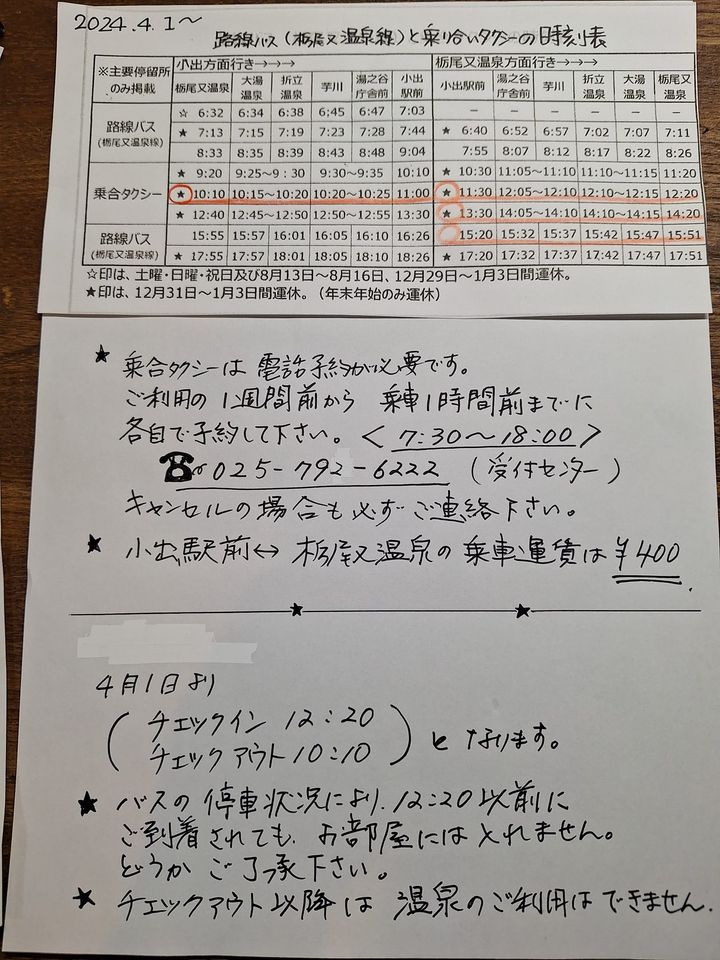 2024.4.1～
路線バス（栃尾又温泉線）と乗り合いタクシーの時刻表
※主要停留所のみ掲載 小出方面行き→→→ 栃尾又温泉方面行き→→→
栃尾又温泉 大湯温泉 折立温泉 芋川 湯之谷庁舎前 小出駅前 小出駅前 湯之谷庁舎前 芋川 折立温泉 大湯温泉 栃尾又温泉
路線バス（栃尾又温泉線）
☆ 6:32 6:34 6:38 6:45 6:47 7:03 － － － － － －
★ 7:13 7:15 7:19 7:23 7:28 7:44 ★ 6:40 6:52 6:57 7:02 7:07 7:11
8:33 8:35 8:39 8:43 8:48 9:04 7:55 8:07 8:12 8:17 8:22 8:26
乗合タクシー
★ 9:20 9:25～9：30 9:30～9:35 10:10 ★ 10:30 11:05～11:10 11:10～11:15 11:20
★ 10:10 10:15～10:20 10:20～10:25 11:00 ★ 11:30 12:05～12:10 12:10～12:15 12:20
★ 12:40 12:45～12:50 12:50～12:55 13:30 ★ 13:30 14:05～14:10 14:10～14:15 14:20
路線バス（栃尾又温泉線）
15:55 15:57 16:01 16:05 16:10 16:26 15:20 15:32 15:37 15:42 15:47 15:51
★ 17:55 17:57 18:01 18:05 18:10 18:26 ★ 17:20 17:32 17:37 17:42 17:47 17:51
☆印は、土曜・日曜・祝日及び8月13日～8月16日、12月29日～1月3日間運休。
★印は、12月31日～1月3日間運休。（年末年始のみ運休）
★ 乗合タクシーは 電話予約が必要です。
ご利用の 1週間前から 乗車1時間前までに
各自で予約して下さい。＜7:30～18:00＞
☎025-792-6222（受付センター）
キャンセルの場合も必ずご連絡下さい。
★ 小出駅前↔栃尾又温泉の乗車運賃は¥400.
4月1日より
（チェックイン 12:20
チェックアウト 10:10）となります。
★ バスの停車状況により、12:20以前に
ご到着されても お部屋には入れません。
どうか ご了承下さい。
★ チェックアウト以降は 温泉のご利用はできません.